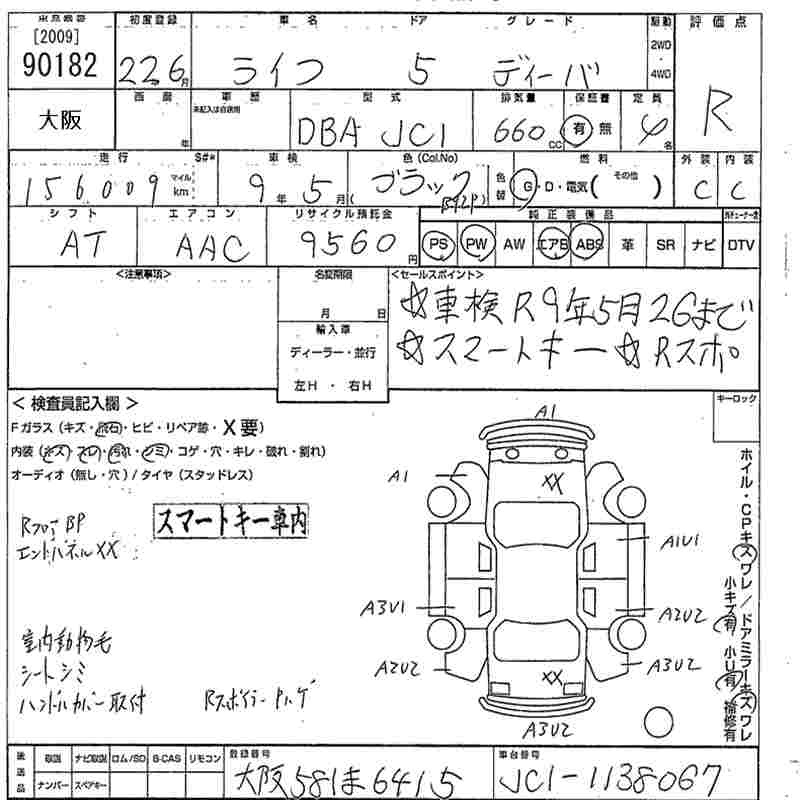 東京最寄 初度登録 車名 ドア グレード 駆動 評価点
[2009]
90182 22.6月 ライフ 5 ディーバ 2WD・4WD R
大阪 西暦 年 車歴 未記入は自家用 型式 DBA JC1 排気量 660cc 保証書 有 無 定員 4名
走行 156009 マイル km S#* 車検 9年5月 色(Col.No) ブラック (B92P) 色替 燃料 G・D・電気( その他 ) 外装 C 内装 C
シフト AT エアコン AAC リサイクル預託金 9560円 純正装備品
PS PW AW エアB ABS 革 SR ナビ DTV
<注意事項> 名変期限 月 日 <セールスポイント>
☆車検R9年5月26まで
☆スマートキー☆Rスポ
輸入車
ディーラー・並行
左H・右H
<検査員記入欄> キーロック
Fガラス(キズ・飛石・ヒビ・リペア跡・X要)
内装(キズ・スレ・汚れ・シミ・コゲ・穴・キレ・破れ・割れ)
オーディオ(無し・穴)/タイヤ(スタッドレス)
RフロアBP
エンドパネルXX
スマートキー車内
室内動物毛
シートシミ
ハンドルカバー取付 Rスポイラーハゲ
A1
A1 XX
A1U1
A3U1 A2U2
A2U2 XX A3U2
A3U2
ホイル・CPキズワレ/ドアミラーキズワレ
小キズ有 小U有 補修有
後送品 取説 ナビ取説 ロム/SD B-CAS リモコン 登録番号 車台番号
ナンバー スペアキー 大阪581ま6415 JC1-1138067